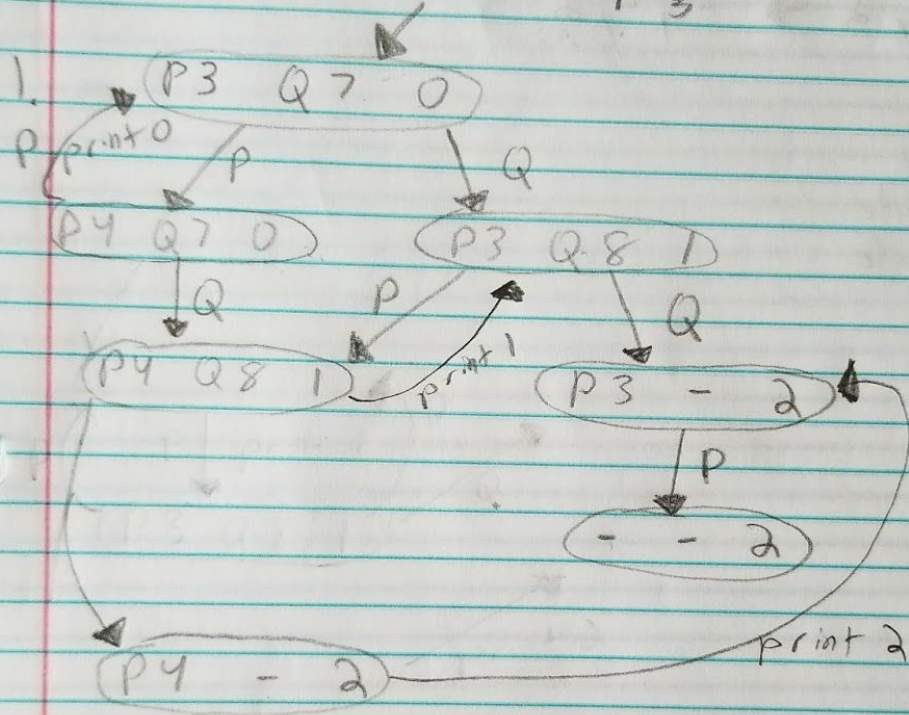 3
1. P3 Q7 0
P print 0 P Q
P4 Q7 0 P3 Q8 1
Q P Q
P4 Q8 1 print 1 P3 - 2
P
- - 2
print 2
P4 - 2